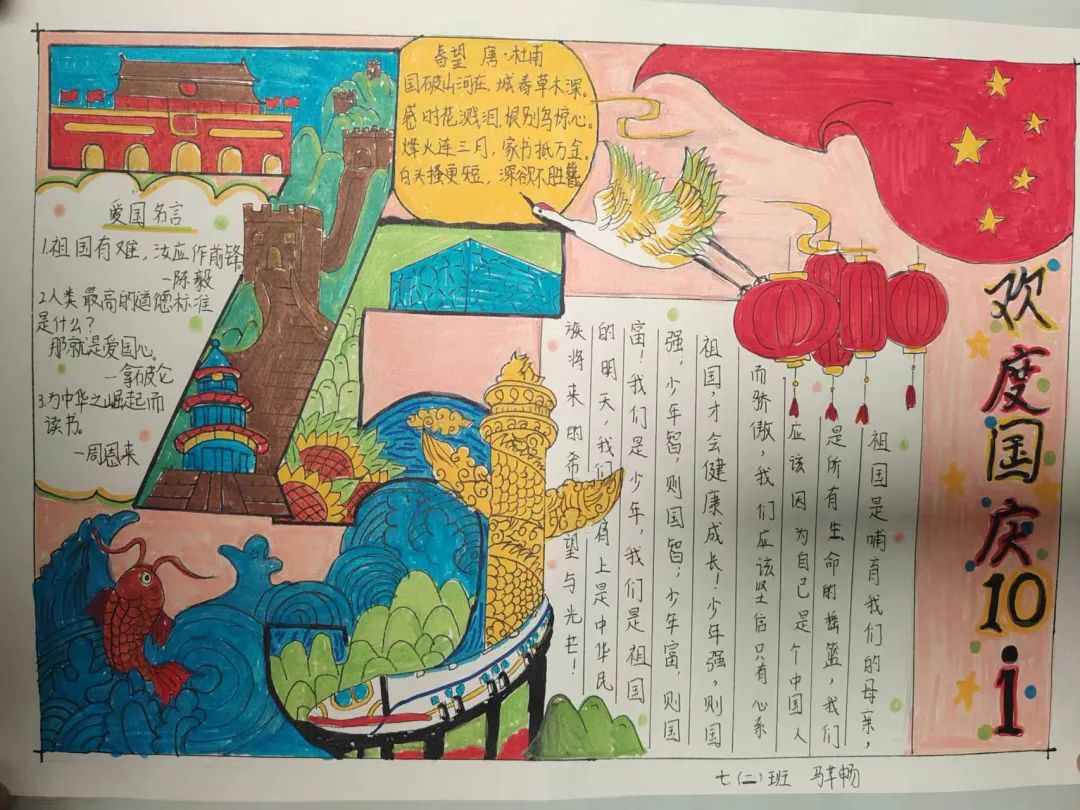 春望 唐·杜甫
国破山河在,城春草木深。
感时花溅泪,恨别鸟惊心。
烽火连三月,家书抵万金。
白头搔更短,深欲不胜簪。
爱国名言
1.祖国有难,汝应作前锋。
—陈毅
2.人类最高的道德标准
是什么?
那就是爱国心。
—拿破仑
3.为中华之崛起而
读书。
—周恩来
欢度国庆10 1
祖国是哺育我们的母亲,
是所有生命的摇篮,我们
应该因为自己是个中国人
而骄傲,我们应该坚信只有心系
祖国,才会健康成长!少年强,则国
强,少年智,则国智;少年富,则国
富!我们是少年,我们是祖国
的明天,我们肩上是中华民
族将来的希望与光芒!
七(二)班